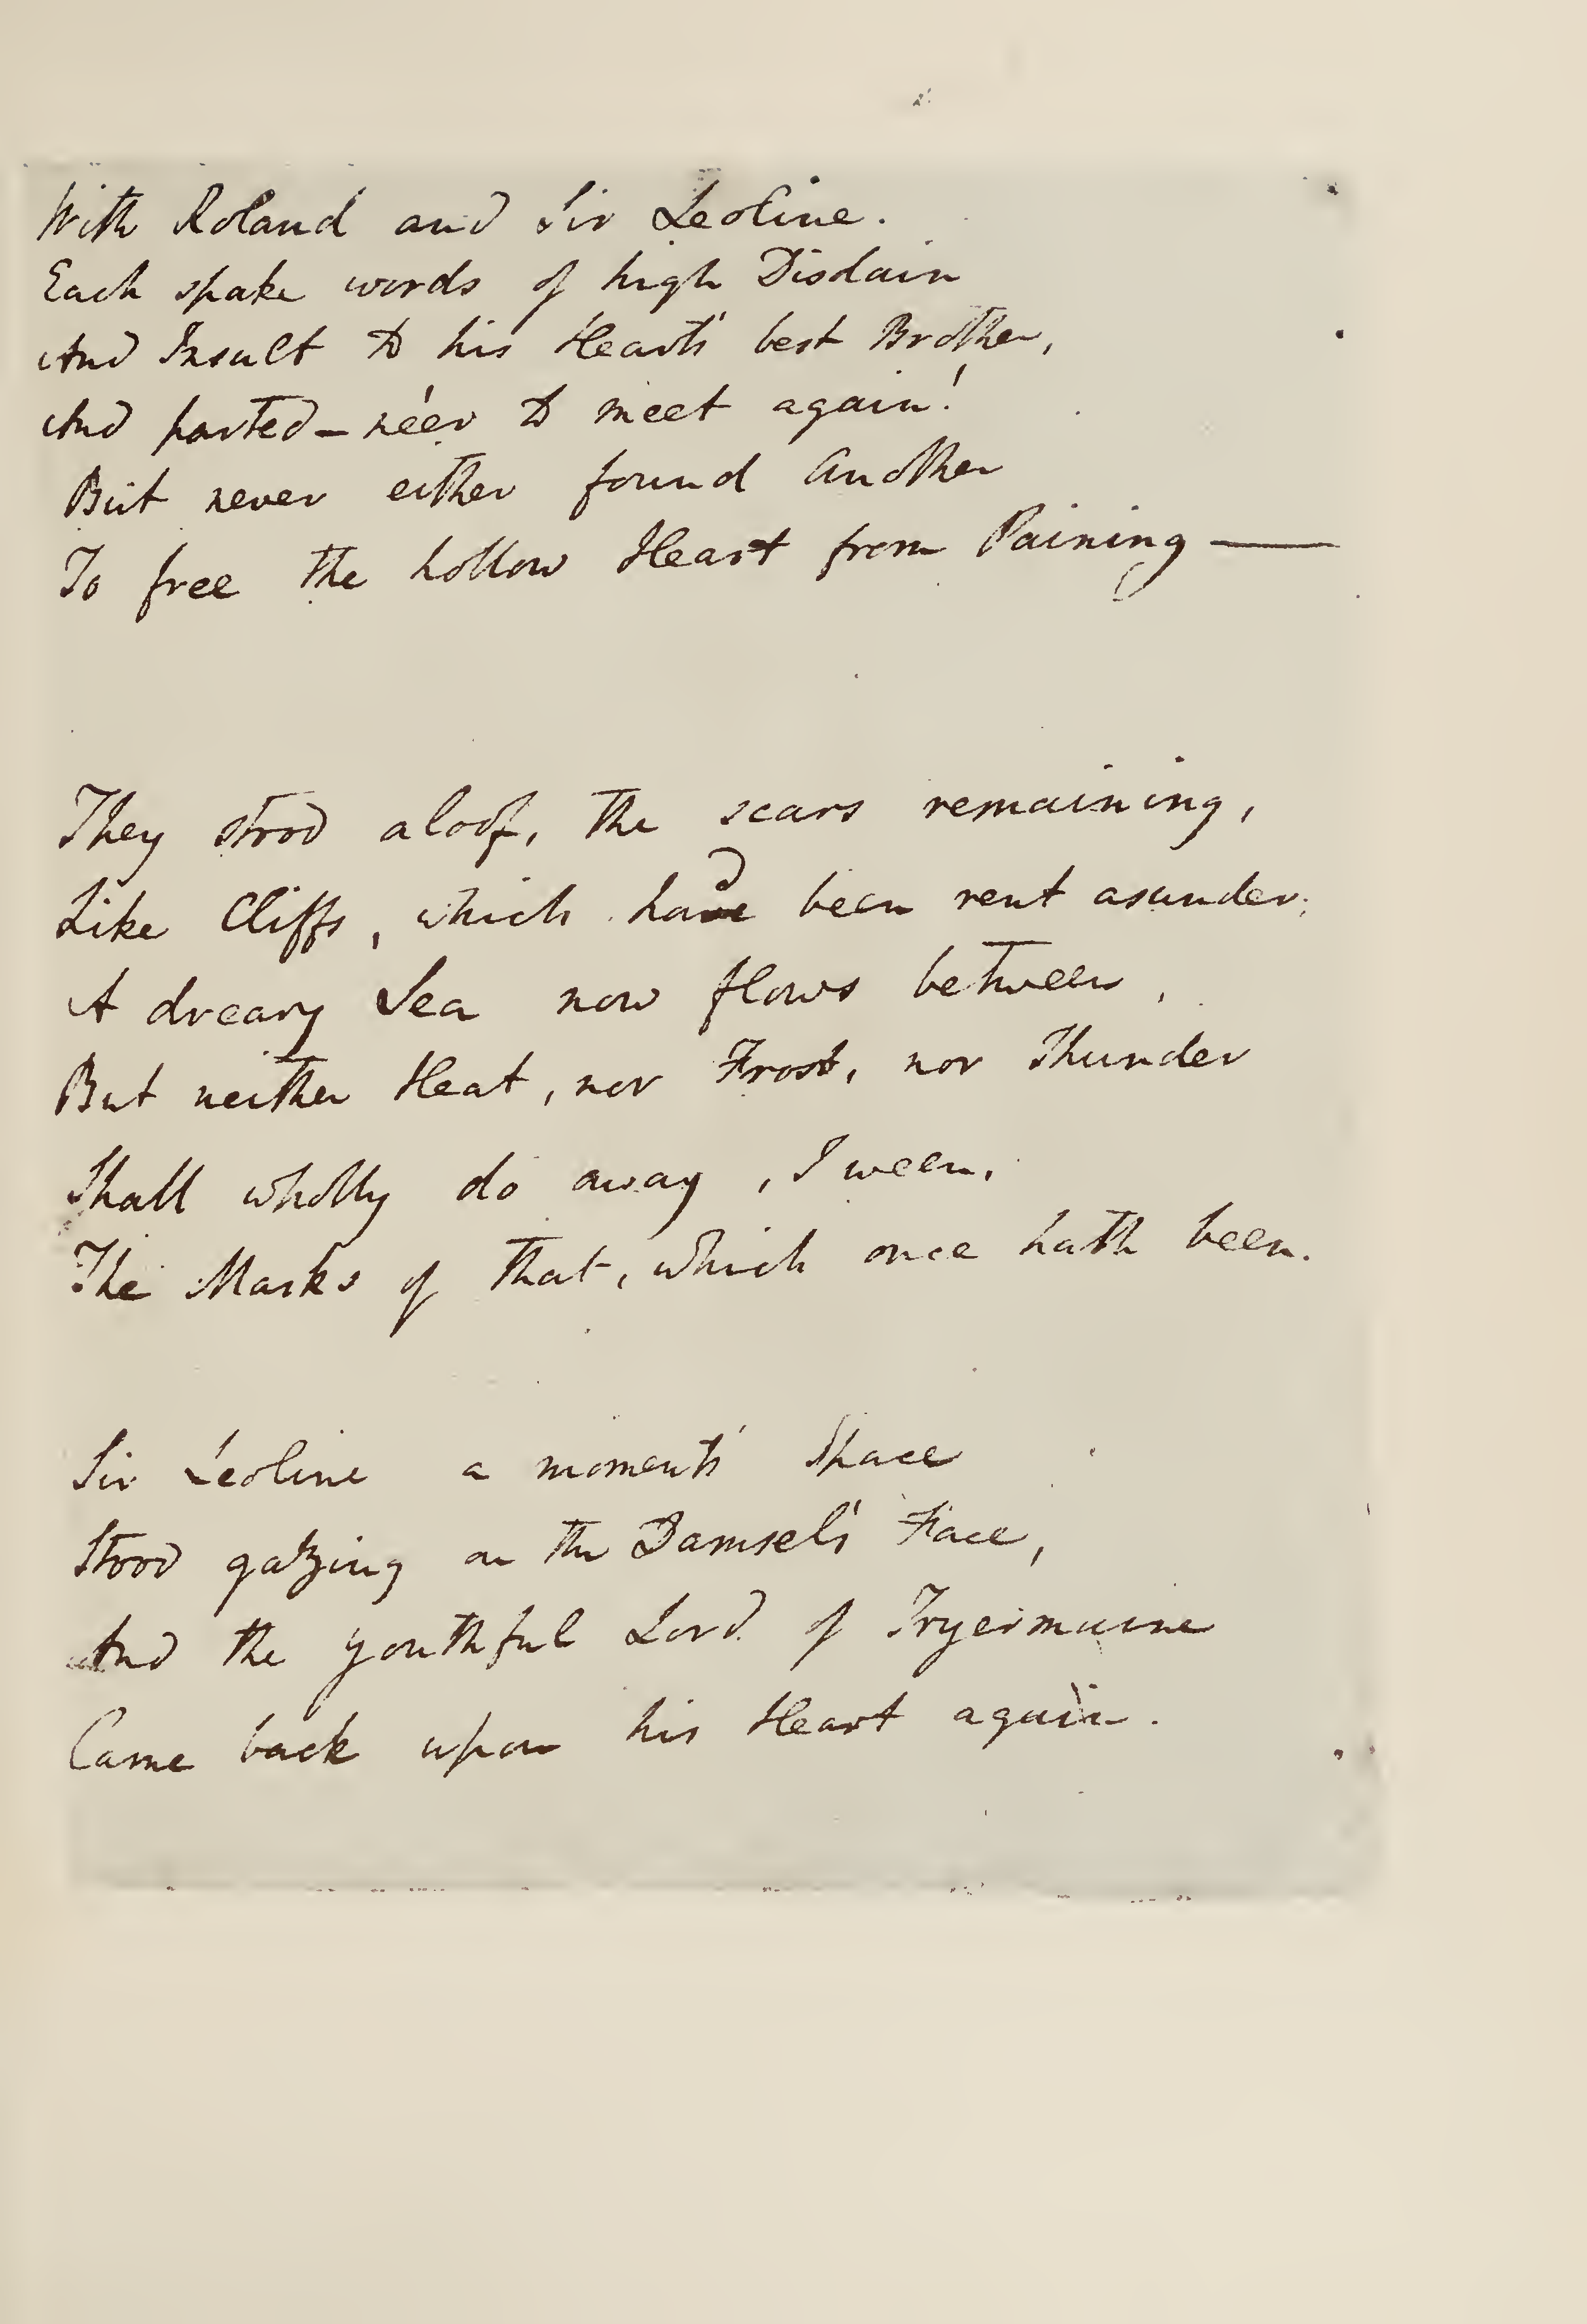 With Roland and Sir Leoline.
Each spake words of high Disdain
And Insult to his Heart's best Brother,
And parted – ne'er to meet again!
But never either found another
To free the hollow Heart from Paining —
They stood aloof, the scars remaining,
Like Cliffs, which had been rent asunder;
A dreary Sea now flows between,
But neither Heat, nor Frost, nor Thunder
Shall wholly do away, I ween,
The Marks of that, which once hath been.
Sir Leoline a moment's Space
Stood gazing on the Damsel's Face,
And the youthful Lord of Tryermaine
Came back upon his Heart again.